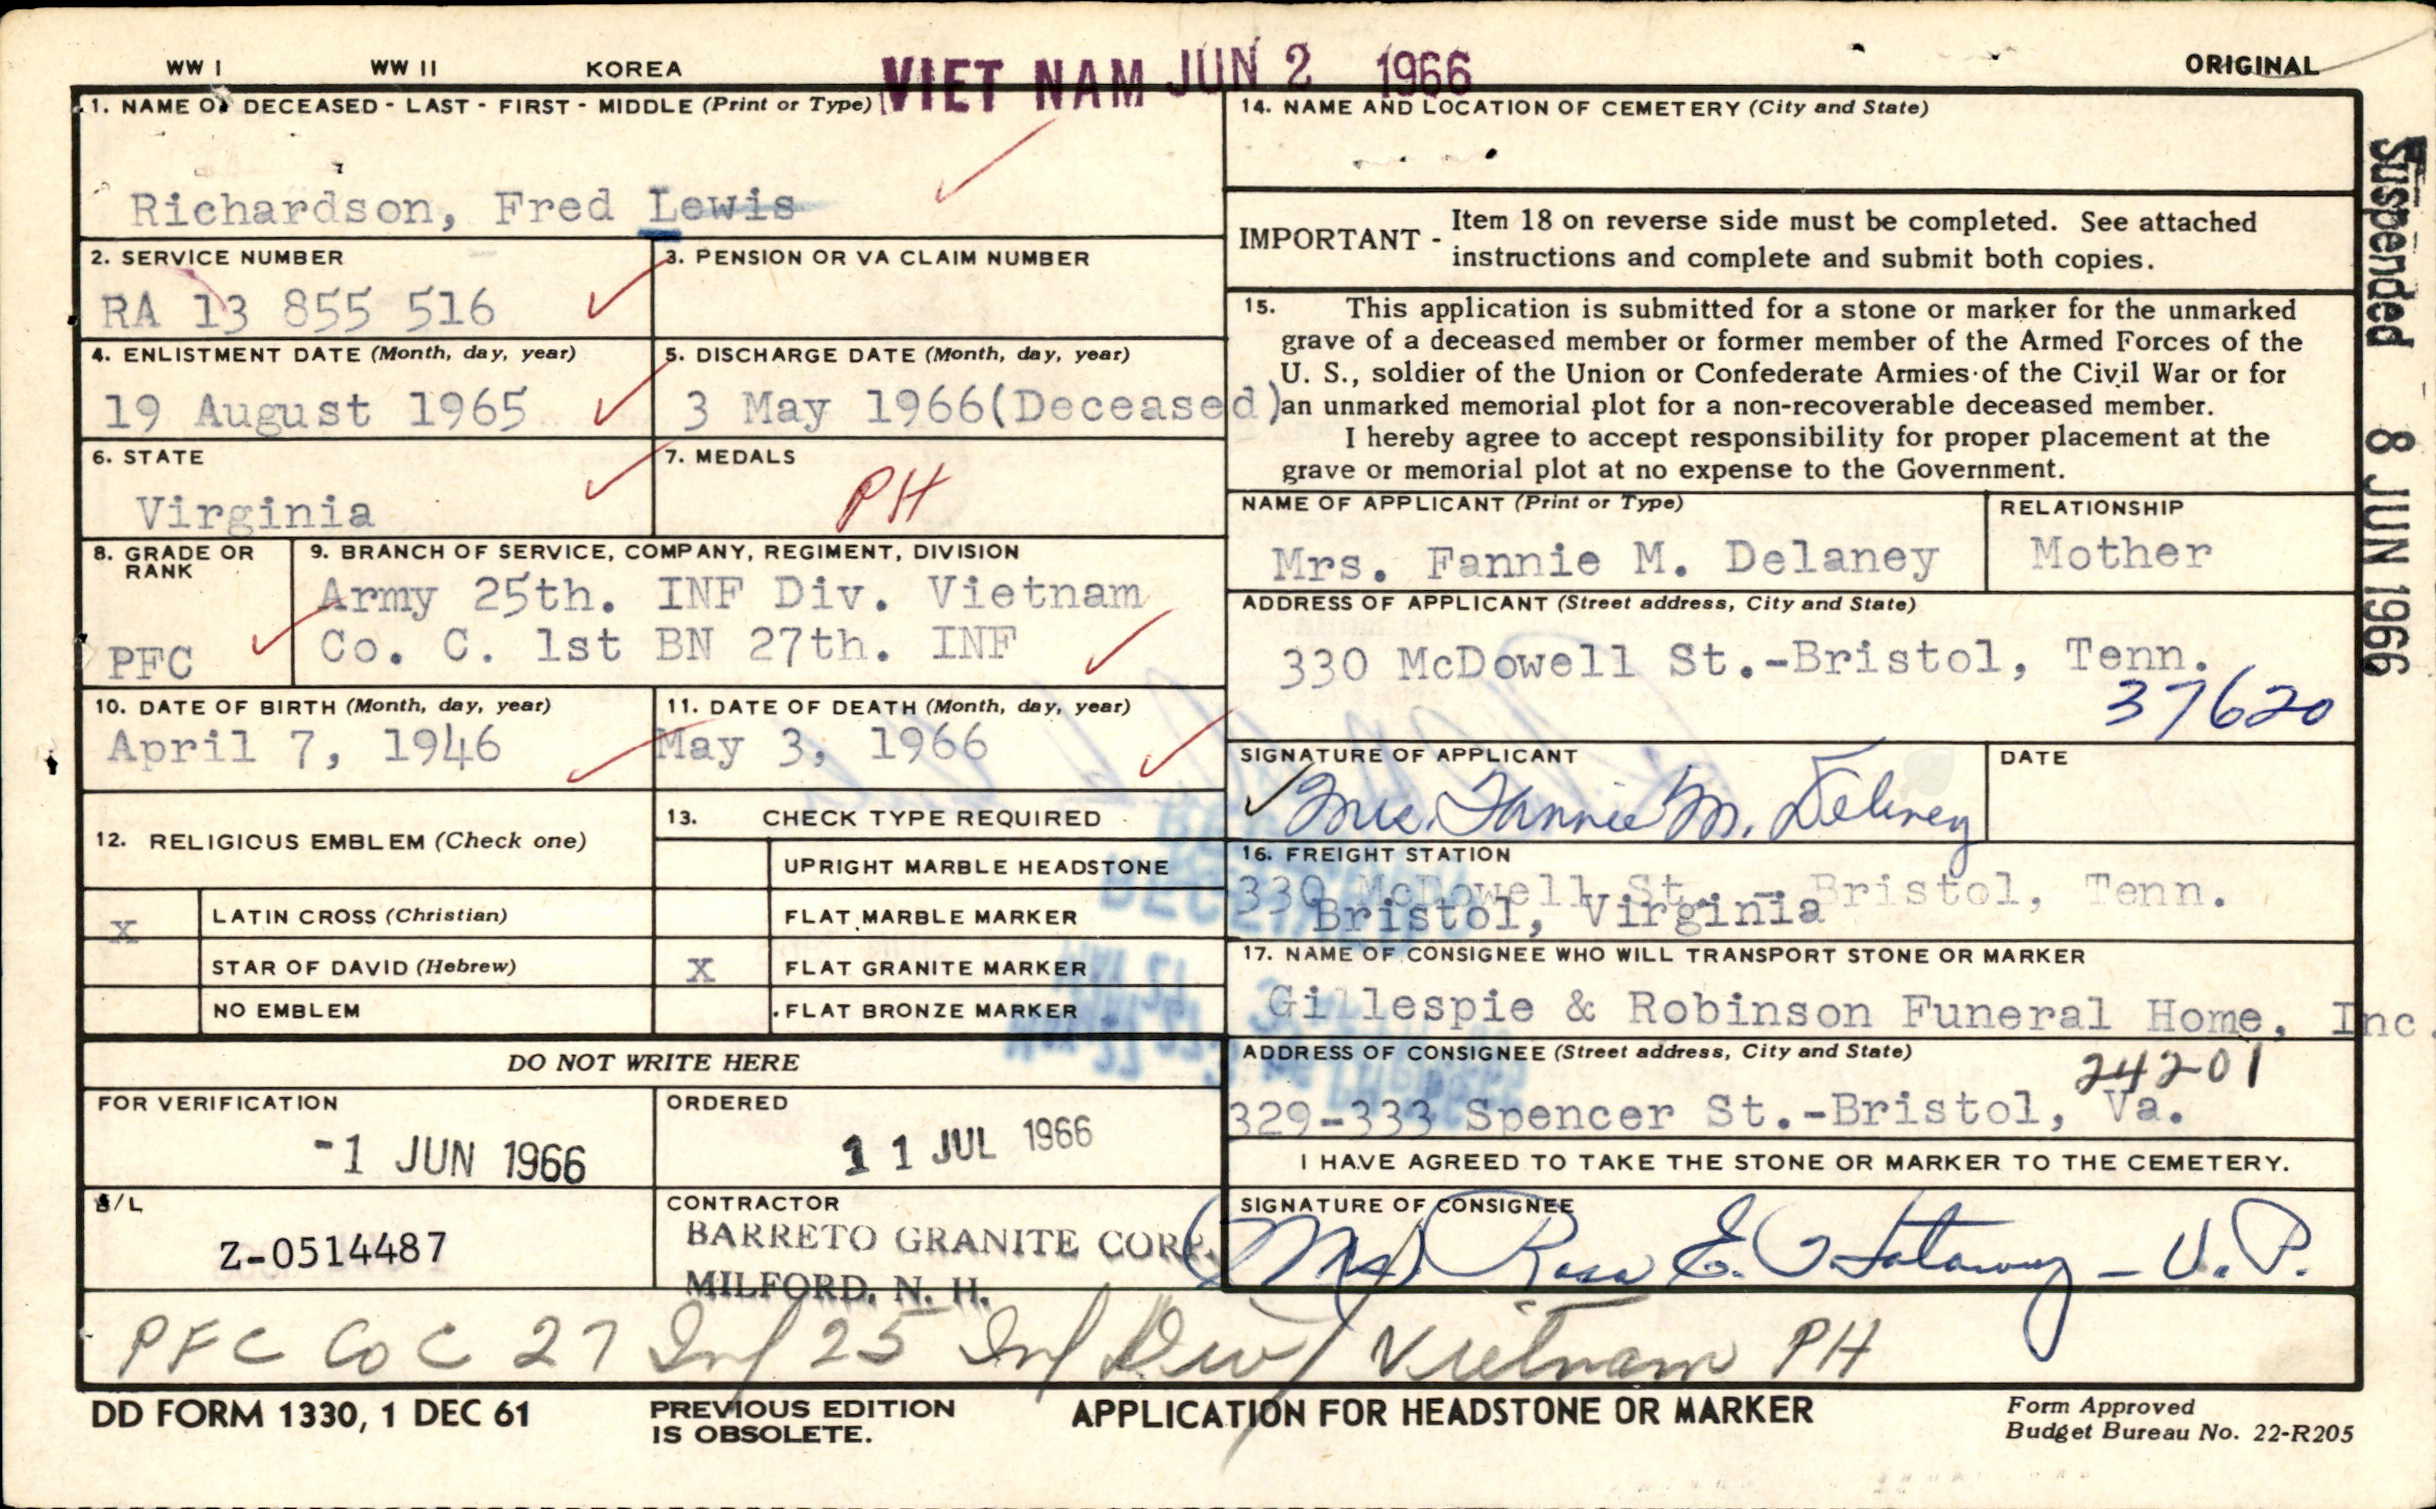 WW I WW II KOREA VIET NAM JUN 2 1966 ORIGINAL
1. NAME OF DECEASED - LAST - FIRST - MIDDLE (Print or Type)
Richardson, Fred Lewis
2. SERVICE NUMBER
RA 13 855 516
3. PENSION OR VA CLAIM NUMBER
4. ENLISTMENT DATE (Month, day, year)
19 August 1965
5. DISCHARGE DATE (Month, day, year)
3 May 1966(Deceased)
6. STATE
Virginia
7. MEDALS
PH
8. GRADE OR
RANK
PFC
9. BRANCH OF SERVICE, COMPANY, REGIMENT, DIVISION
Army 25th. INF Div. Vietnam
Co. C. 1st BN 27th. INF
10. DATE OF BIRTH (Month, day, year)
April 7, 1946
11. DATE OF DEATH (Month, day, year)
May 3, 1966
12. RELIGIOUS EMBLEM (Check one)
x LATIN CROSS (Christian)
STAR OF DAVID (Hebrew)
NO EMBLEM
13. CHECK TYPE REQUIRED
UPRIGHT MARBLE HEADSTONE
FLAT MARBLE MARKER
X FLAT GRANITE MARKER
FLAT BRONZE MARKER
DO NOT WRITE HERE
FOR VERIFICATION
-1 JUN 1966
ORDERED
11 JUL 1966
S/L
Z-0514487
CONTRACTOR
BARRETO GRANITE CORP.
MILFORD, N. H.
14. NAME AND LOCATION OF CEMETERY (City and State)
IMPORTANT - Item 18 on reverse side must be completed. See attached
instructions and complete and submit both copies.
15. This application is submitted for a stone or marker for the unmarked
grave of a deceased member or former member of the Armed Forces of the
U. S., soldier of the Union or Confederate Armies of the Civil War or for
an unmarked memorial plot for a non-recoverable deceased member.
I hereby agree to accept responsibility for proper placement at the
grave or memorial plot at no expense to the Government.
NAME OF APPLICANT (Print or Type)
Mrs. Fannie M. Delaney
RELATIONSHIP
Mother
ADDRESS OF APPLICANT (Street address, City and State)
330 McDowell St.-Bristol, Tenn.
37620
SIGNATURE OF APPLICANT
Mrs. Fannie M. Delaney
DATE
16. FREIGHT STATION
330 McDowell St. - Bristol, Tenn.
Bristol, Virginia
17. NAME OF CONSIGNEE WHO WILL TRANSPORT STONE OR MARKER
Gillespie & Robinson Funeral Home, Inc.
ADDRESS OF CONSIGNEE (Street address, City and State)
24201
329-333 Spencer St.-Bristol, Va.
I HAVE AGREED TO TAKE THE STONE OR MARKER TO THE CEMETERY.
SIGNATURE OF CONSIGNEE
(Mrs) Rosa E. - V.P.
PFC Co C 27 Inf 25 Inf Div Vietnam PH
DD FORM 1330, 1 DEC 61
PREVIOUS EDITION
IS OBSOLETE.
APPLICATION FOR HEADSTONE OR MARKER
Form Approved
Budget Bureau No. 22-R205
Suspended 8 JUN 1966